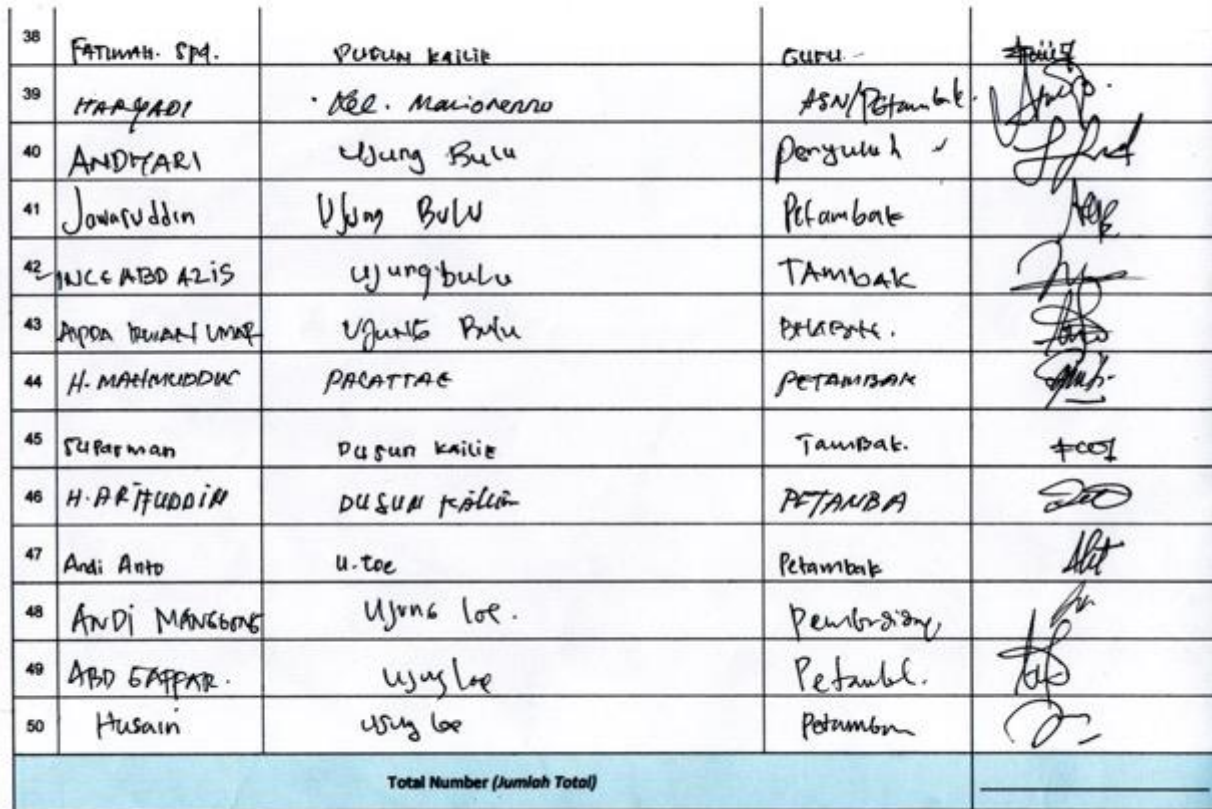 38 FATIMAH. SPd. DUSUN KAILIE GURU
39 HARYADI Kel. Marionenno ASN/Petambak.
40 ANDHARI Ujung Bulu Penyuluh
41 Jawaruddin Ujung BULU Petambak
42 INCE ABD AZIS Ujung bulu TAMBAK
43 UMAR UJUNG Bulu
44 H. MAHMUDDIN PACATTAE PETAMBAK
45 SUParman Dusun Kailie TamBak.
46 H. ARIFUDDIN DUSUN Kailie PETANBA
47 Andi Anto U. Loe Petambak
48 ANDI MANGGONG UJUNG loe.
49 ABD GAFFAR. Ujung loe
50 Husain Ujung loe
Total Number (Jumlah Total)